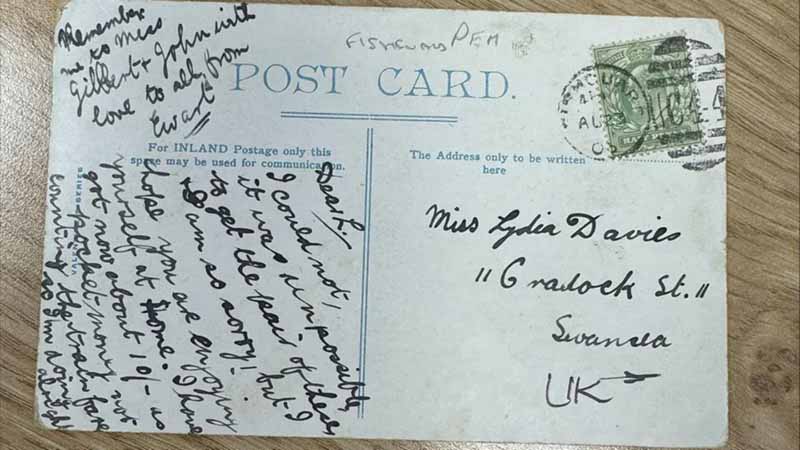 Remember
me to Miss
Gilbert + John with
love to all from
Ewart
FISHGUARD PEM
POST CARD.
For INLAND Postage only this
space may be used for communication.
The Address only to be written
here
SERIES
Dear L,
I could not,
it was impossible
to get the pair of these
I am so sorry! but I
hope you are enjoying
yourself at home. I have
got now about 10/- as
pocket money not
counting the train fare
so I'm doing
alright
AU 23
Miss Lydia Davies
11 Cradock St.
Swansea
UK